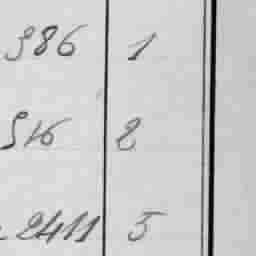 986 1
516 2
2411 5